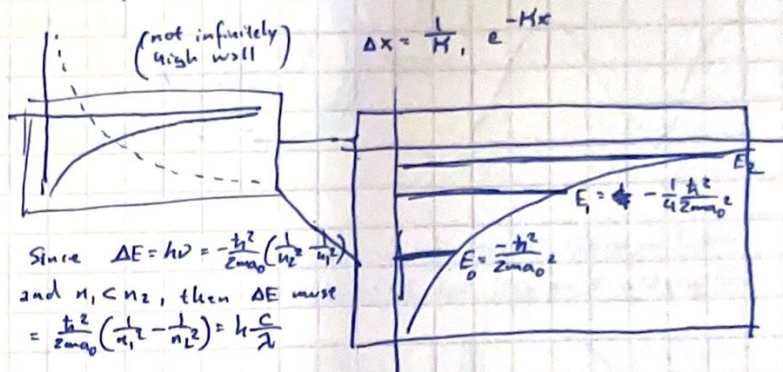 (not infinitely high wall)
Δx = 1/K, e^(-Kx)
E₂
E₁ = - 1/4 ħ²/2ma₀²
E₀ = -ħ²/2ma₀²
Since ΔE = hν = -ħ²/2ma₀ (1/n₂² - 1/n₁²)
and n₁ < n₂, then ΔE must
= ħ²/2ma₀ (1/n₁² - 1/n₂²) = h c/λ